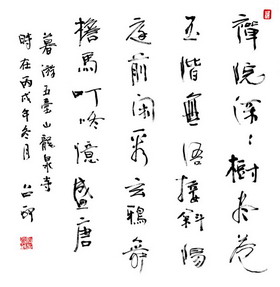 院深〻樹木蒼
玉階無語接斜陽
庭前閑看玄鴉舞
檐馬叮咚憶盛唐
暮游五臺山龍泉寺
時在丙戌年冬月